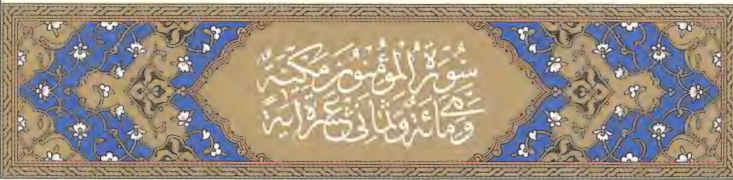 سُورَةُ المُؤْمِنُونَ مَكِّيَّةٌ
وَهِيَ مِائَةٌ وَثَمَانِي عَشْرَةَ آيَةً